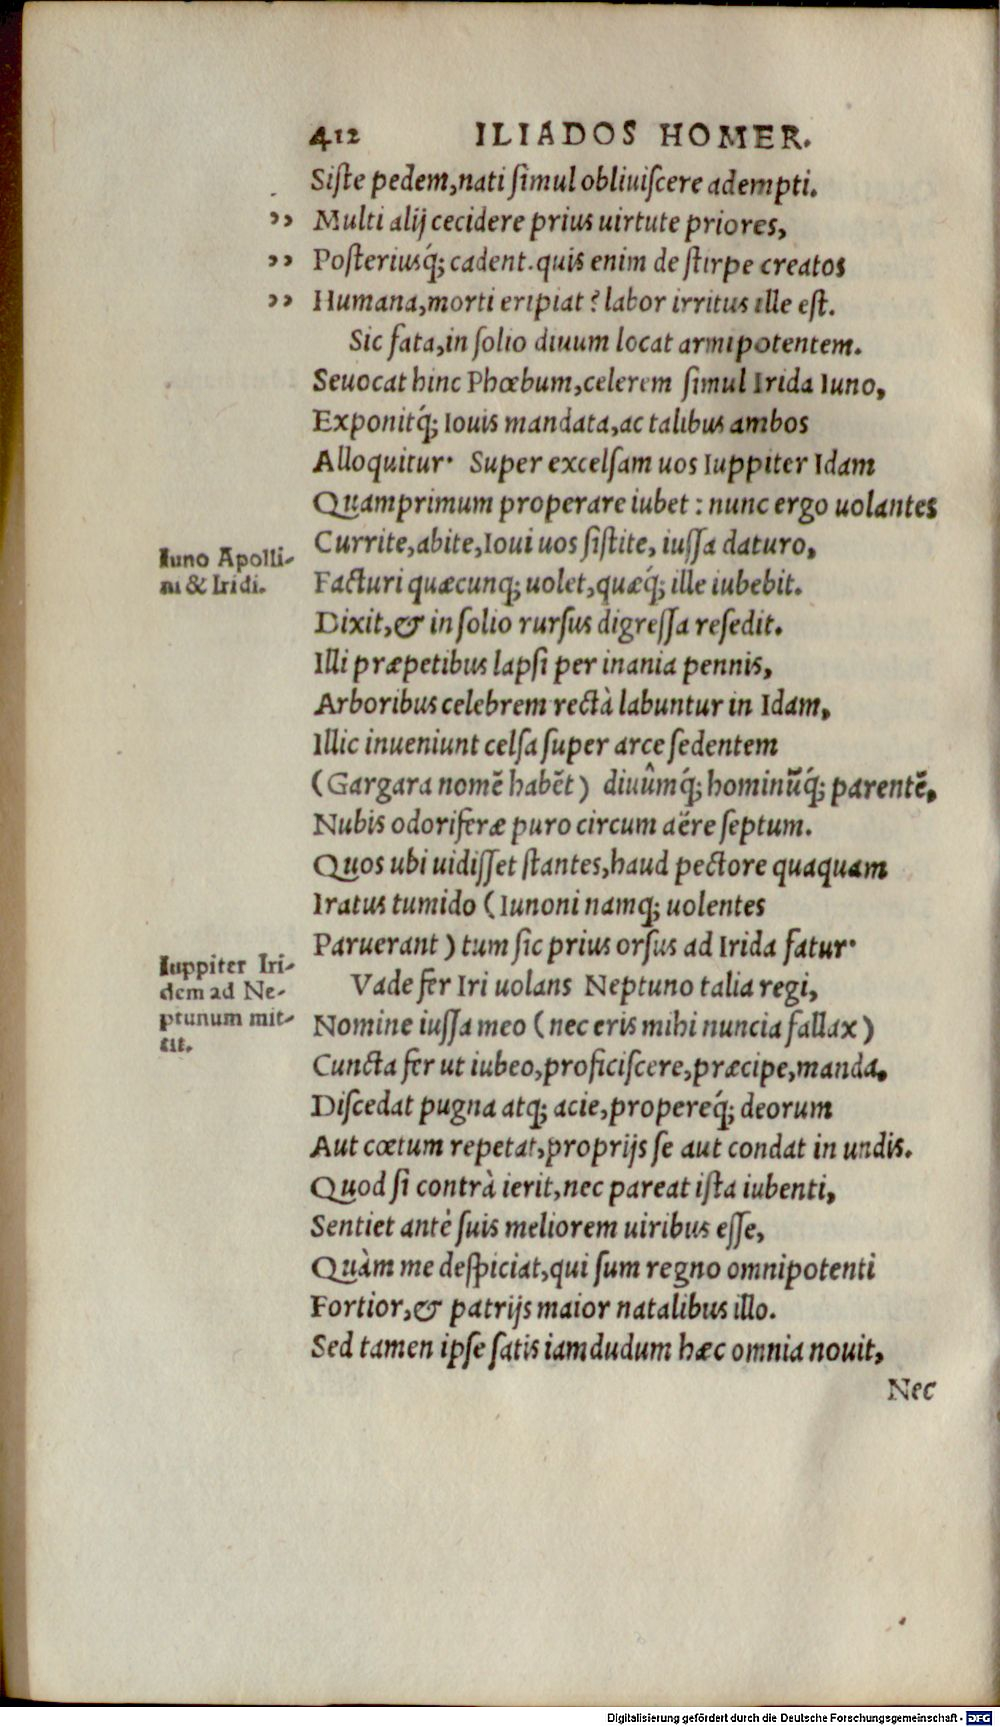 412 ILIADOS HOMER.
Siste pedem, nati simul obliuiscere adempti.
,, Multi alij cecidere prius uirtute priores,
,, Posteriusq́; cadent. quis enim de stirpe creatos
,, Humana, morti eripiat? labor irritus ille est.
Sic fata, in solio diuum locat armipotentem.
Seuocat hinc Phœbum, celerem simul Irida Iuno,
Exponitq́; Iouis mandata, ac talibus ambos
Alloquitur· Super excelsam uos Iuppiter Idam
Quamprimum properare iubet: nunc ergo uolantes
Currite, abite, Ioui uos sistite, iussa daturo,
Iuno Apolli-
ni & Iridi.
Facturi quæcunq; uolet, quæq́; ille iubebit.
Dixit, & in solio rursus digressa resedit.
Illi præpetibus lapsi per inania pennis,
Arboribus celebrem rectà labuntur in Idam,
Illic inueniunt celsa super arce sedentem
(Gargara nomē habēt) diuûmq́; hominūq́; parentē,
Nubis odoriferæ puro circum aëre septum.
Quos ubi uidisset stantes, haud pectore quaquam
Iratus tumido (Iunoni namq; uolentes
Paruerant) tum sic prius orsus ad Irida fatur·
Iuppiter Iri-
dem ad Ne-
ptunum mit-
tit.
Vade fer Iri uolans Neptuno talia regi,
Nomine iussa meo (nec eris mihi nuncia fallax)
Cuncta fer ut iubeo, proficiscere, præcipe, manda.
Discedat pugna atq; acie, propereq́; deorum
Aut cœtum repetat, proprijs se aut condat in undis.
Quod si contrà ierit, nec pareat ista iubenti,
Sentiet antè suis meliorem uiribus esse,
Quàm me despiciat, qui sum regno omnipotenti
Fortior, & patrijs maior natalibus illo.
Sed tamen ipse satis iamdudum hæc omnia nouit,
Nec
Digitalisierung gefördert durch die Deutsche Forschungsgemeinschaft - DFG